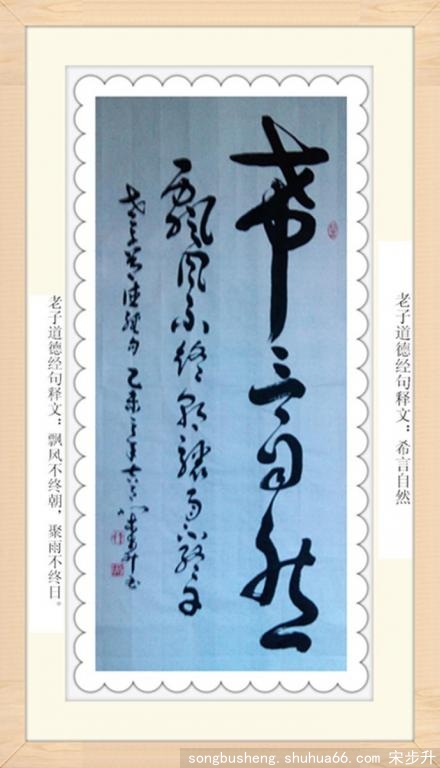 老子道德经句释文：希言自然
希言自然
飄風不終朝驟雨不終日
老子道德經句 乙未 宋步升书
老子道德经句释文：飘风不终朝，聚雨不终日。
songbusheng. shuhua66. com 宋步升